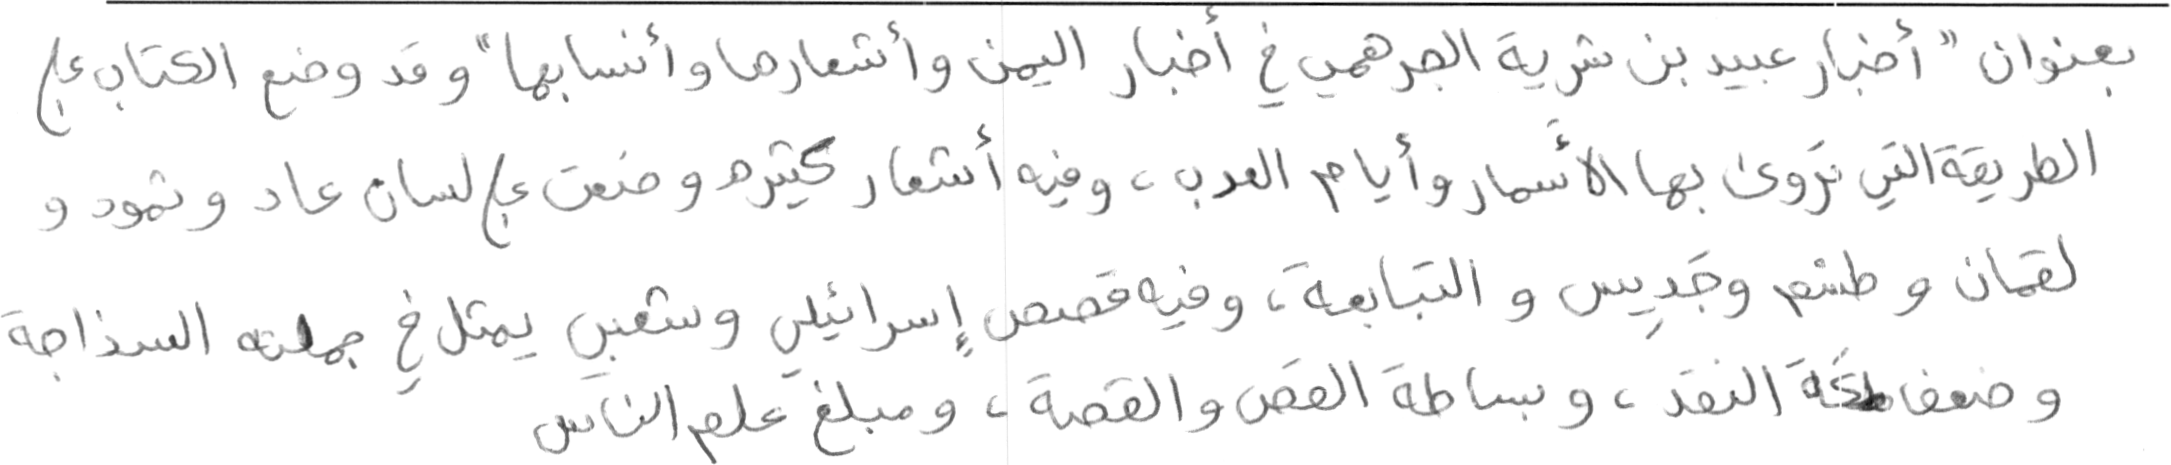 بعنوان "أخبار عبيد بن شرية الجرهمي في أخبار اليمن وأشعارها وأنسابها" وقد وضع الكتاب على
الطريقة التي تروى بها الأسمار وأيام العرب، وفيه أشعار كثيره وضعت على لسان عاد وثمود و
لقمان و طسم وجَدِيس و التبابعة، وفيه قصص إسرائيلي وشعبي يمثل في جملته السذاجة
وضعف ملكة النقد، وبساطة القص والقصة، ومبلغ علم الناس